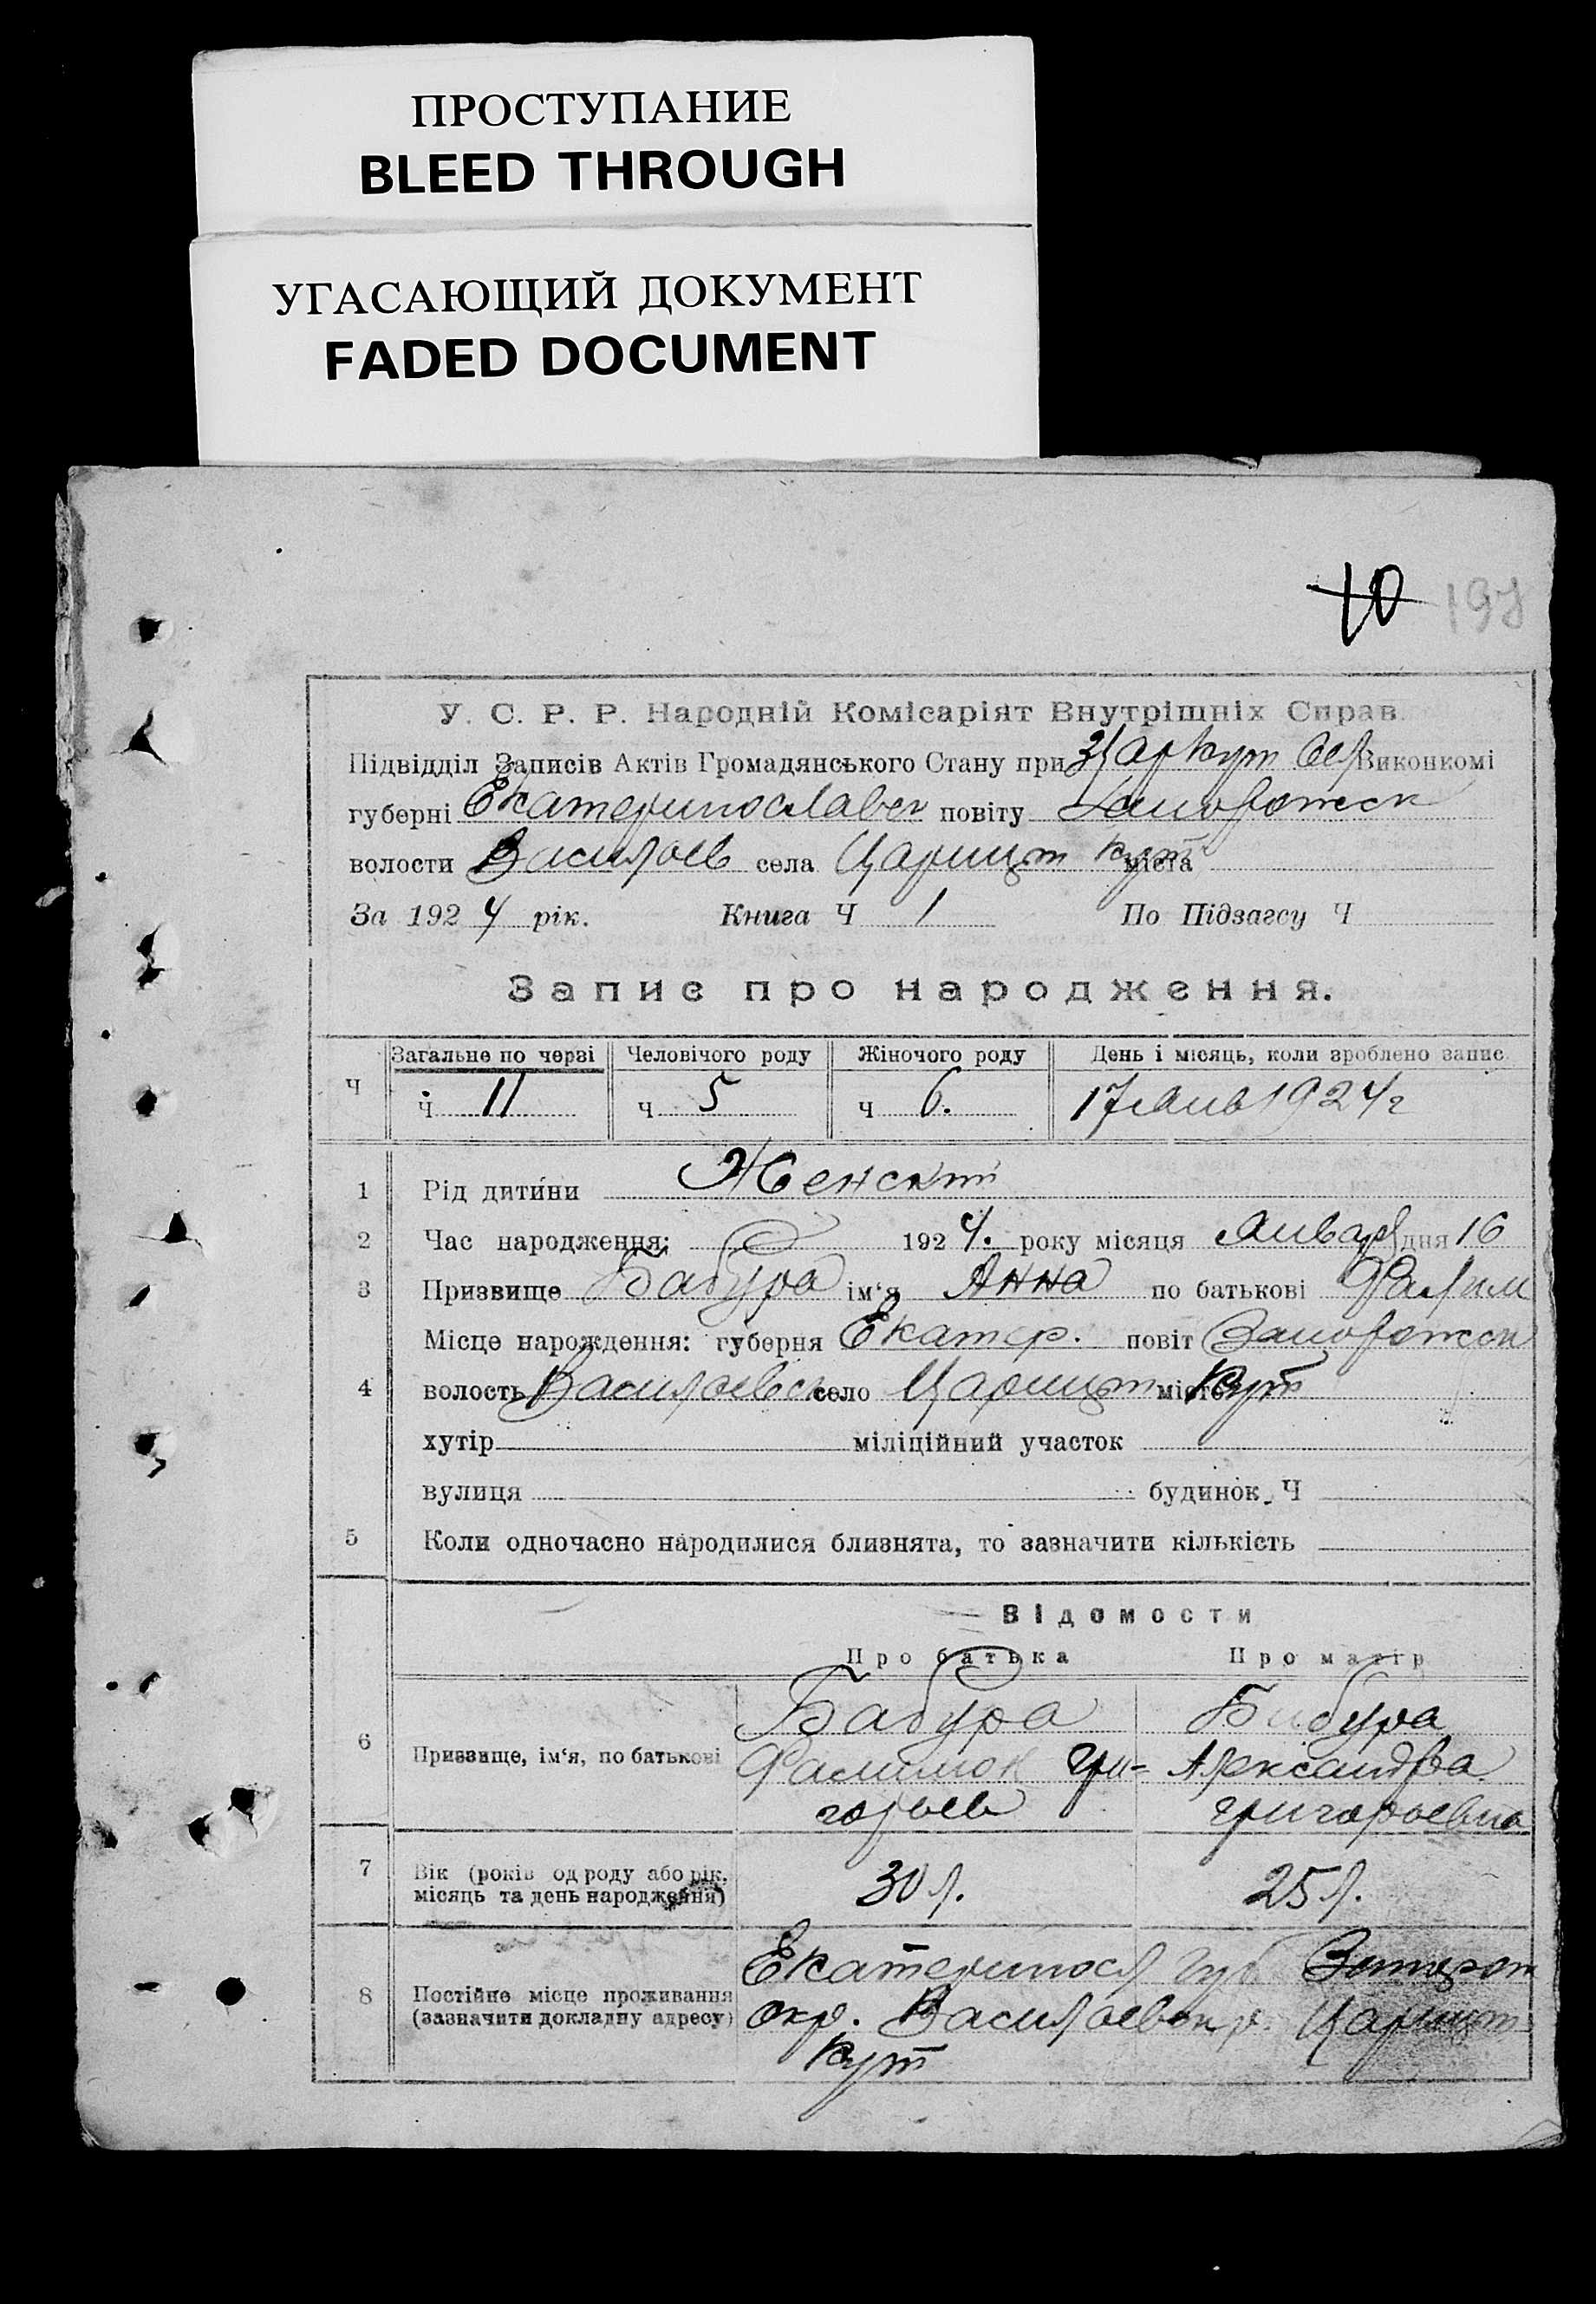 ПРОСТУПАНИЕ
BLEED THROUGH
УГАСАЮЩИЙ ДОКУМЕНТ
FADED DOCUMENT
10 198
У. С. Р. Р. Народній Комісаріят Внутрішніх Справ.
Підвідділ Записів Актів Громадянського Стану при Царкут Сел Виконкомі
губерні Екатеринославск повіту Запорожск
волости Васильев села Царицын Кут міста
За 1924 рік. Книга Ч 1 По Підзагсу Ч
Запис про народження.
Ч Загальне по черзі Человічого роду Жіночого роду День і місяць, коли зроблено запис
ч 11 ч 5 ч 6. 17 Янв 1924 г
1 Рід дитини Женский
2 Час народження: 1924. року місяця Января дня 16
3 Призвище Бабура ім'я Анна по батькові
Місце народження: губерня Екатер. повіт Запорожск
4 волость Васильевск село Царицын місто Кут
хутір міліційний участок
вулиця будинок Ч
5 Коли одночасно народилися близнята, то зазначити кількість
Відомости
Про батька Про матір
6 Призвище, ім'я, по батькові
Бабура Бабура
Гри= Александра
горьев Григорьевна
7 Вік (років од роду або рік, місяць та день народження) 30 л. 25 л.
8 Постійне місце проживання (зазначити докладну адресу)
Екатериносл губ Запорож
окр. Васильевск р. Царицын
Кут